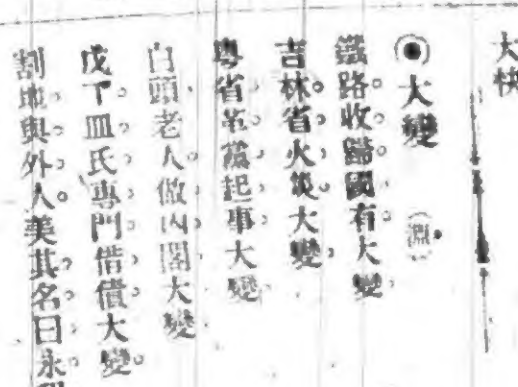 大快
◉大變 (淵)
鐵路收歸國有大變
吉林省火災大變
粵省革黨起事大變
白頭老人做內閣大變
戊丁皿氏專門借債大變
割地與外人美其名曰永